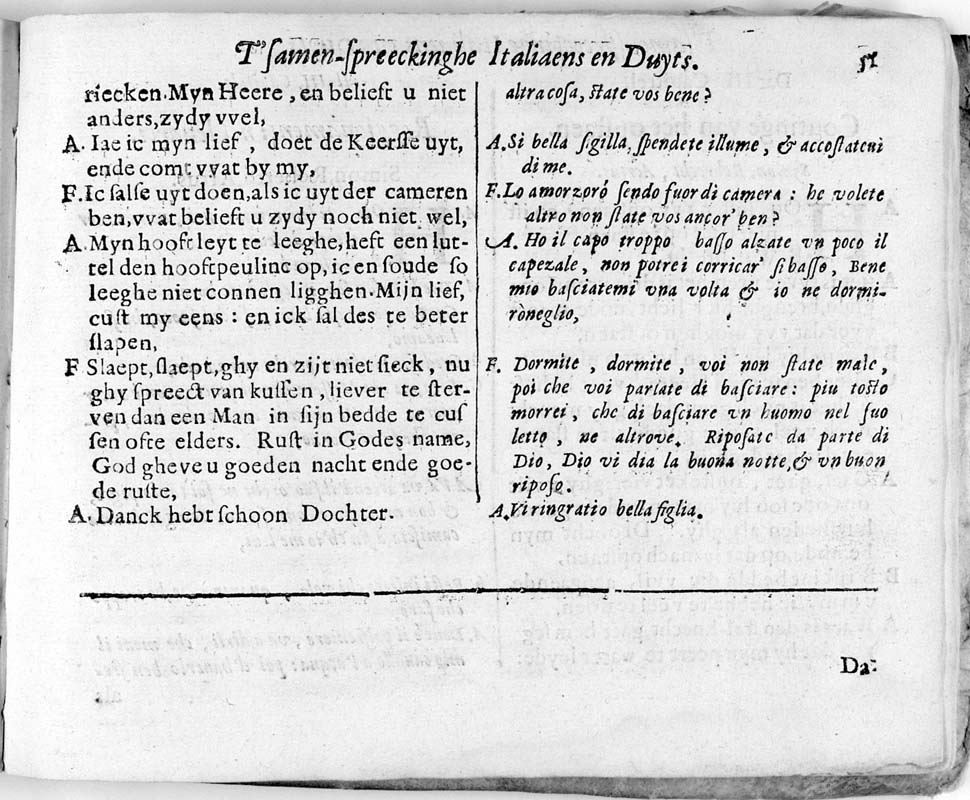 T'samen-spreeckinghe Italiaens en Duyts. 51
riecken. Myn Heere, en belieft u niet
anders, zydy vvel,
A. Iae ic myn lief, doet de Keersse uyt,
ende comt vvat by my,
F. Ic salse uyt doen, als ic uyt der cameren
ben, vvat belieft u zydy noch niet wel,
A. Myn hooft leyt te leeghe, heft een lut-
tel den hooftpeulinc op, ic en soude so
leeghe niet connen ligghen. Mijn lief,
cust my eens : en ick sal des te beter
slapen,
F Slaept, slaept, ghy en zijt niet sieck, nu
ghy spreect van kussen, liever te ster-
ven dan een Man in sijn bedde te cus
sen ofte elders. Rust in Godes name,
God gheve u goeden nacht ende goe-
de ruste,
A. Danck hebt schoon Dochter.
altra cosa, state vos bene?
A. Si bella figilla, spendete illume, & accostateui
di me.
F. Lo amorzoró sendo fuor di camera : he volete
altro non state vos ancor' ben?
A. Ho il capo troppo basso alzate vn poco il
capezale, non potrei corricar' si basso, Bene
mio basciatemi vna volta & io ne dormi-
roneglio,
F. Dormite, dormite, voi non state male,
poi che voi parlate di basciare: piu tosto
morrei, che di basciare vn huomo nel suo
letto, ne altrove. Riposate da parte di
Dio, Dio vi dia la buona notte, & vn buon
riposo.
A. Vi ringratio bella figlia.
Da: